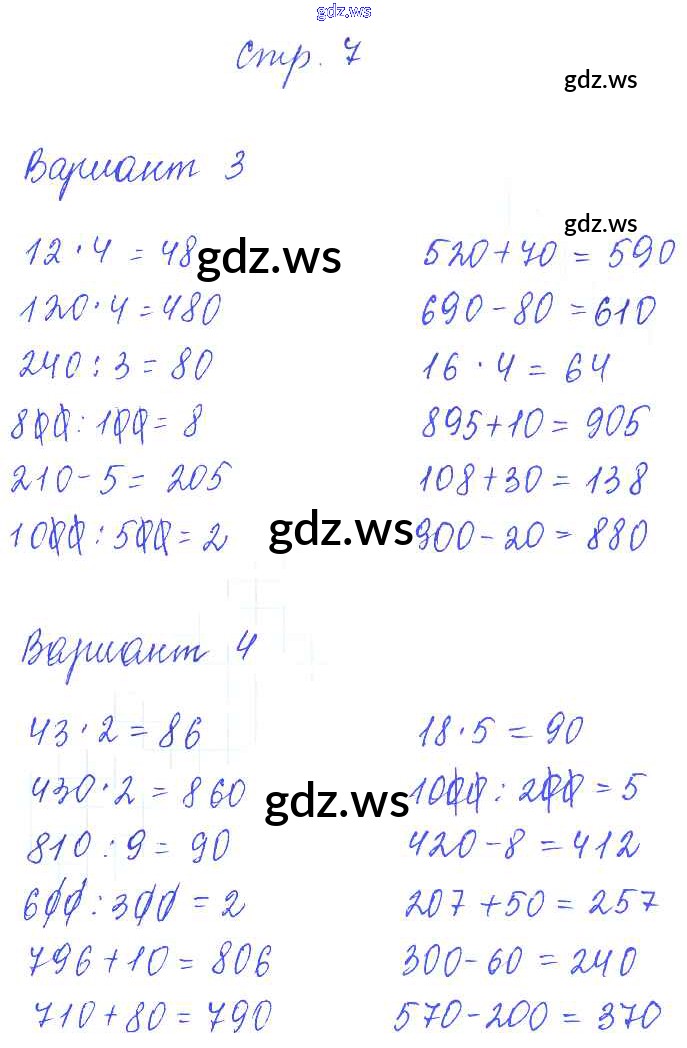 gdz.ws
Стр. 7
gdz.ws
Вариант 3
gdz.ws
12 · 4 = 48
gdz.ws
520 + 70 = 590
120 · 4 = 480
690 - 80 = 610
240 : 3 = 80
16 · 4 = 64
800 : 100 = 8
895 + 10 = 905
210 - 5 = 205
108 + 30 = 138
1000 : 500 = 2
gdz.ws
900 - 20 = 880
Вариант 4
43 · 2 = 86
18 · 5 = 90
430 · 2 = 860
gdz.ws
1000 : 200 = 5
810 : 9 = 90
420 - 8 = 412
600 : 300 = 2
207 + 50 = 257
796 + 10 = 806
300 - 60 = 240
710 + 80 = 790
570 - 200 = 370